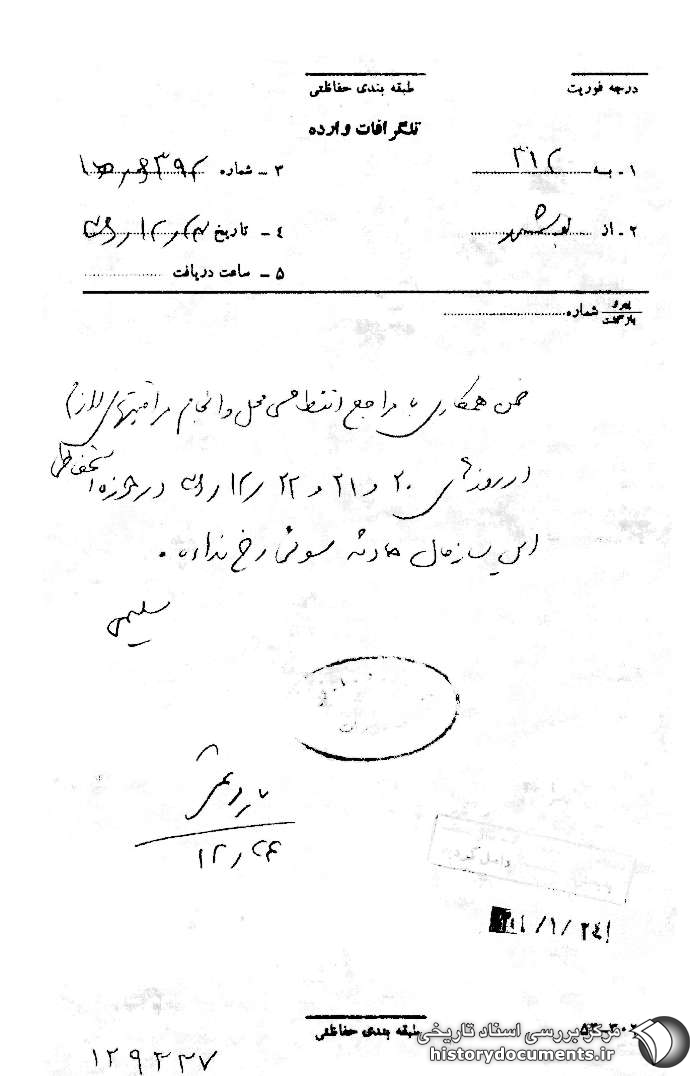 درجه فوریت
طبقه بندی حفاظتی
تلگرافات وارده
۱ - به ۳۱۲
۳ - شماره
۲ - از نوشهر
۴ - تاریخ
۵ - ساعت دریافت
پیرو
بازگشت شماره
ضمن همکاری با مراجع انتظامی محل و انجام مراقبتهای لازم
در روزهای ۲۰ و ۲۱ و ۲۲ /۱۲/ در حوزه استحفاظی
این سازمان حادثه سوئی رخ نداده .
سلیمی
۱۲
طبقه بندی حفاظتی
۱۲۹۳۲۷
مرکز بررسی اسناد تاریخی
historydocuments.ir